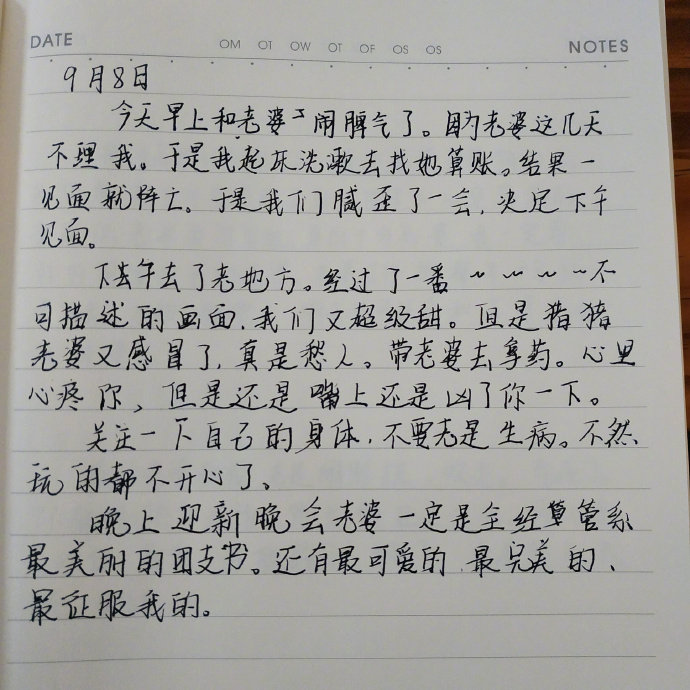 DATE OM OT OW OT OF OS OS NOTES
9月8日
今天早上和老婆闹脾气了。因为老婆这几天
不理我。于是我起床洗漱去找她算账。结果一
见面就阵亡。于是我们腻歪了一会,决定下午
见面。
下午去了老地方。经过了一番~~~~不
可描述的画面,我们又超级甜。但是猪猪
老婆又感冒了,真是愁人。带老婆去拿药。心里
心疼你、但是还是嘴上还是凶了你一下。
关注一下自己的身体,不要老是生病。不然
玩的都不开心了、
晚上迎新晚会老婆一定是全经算管系
最美丽的团支书。还有最可爱的、最完美的、
最征服我的。